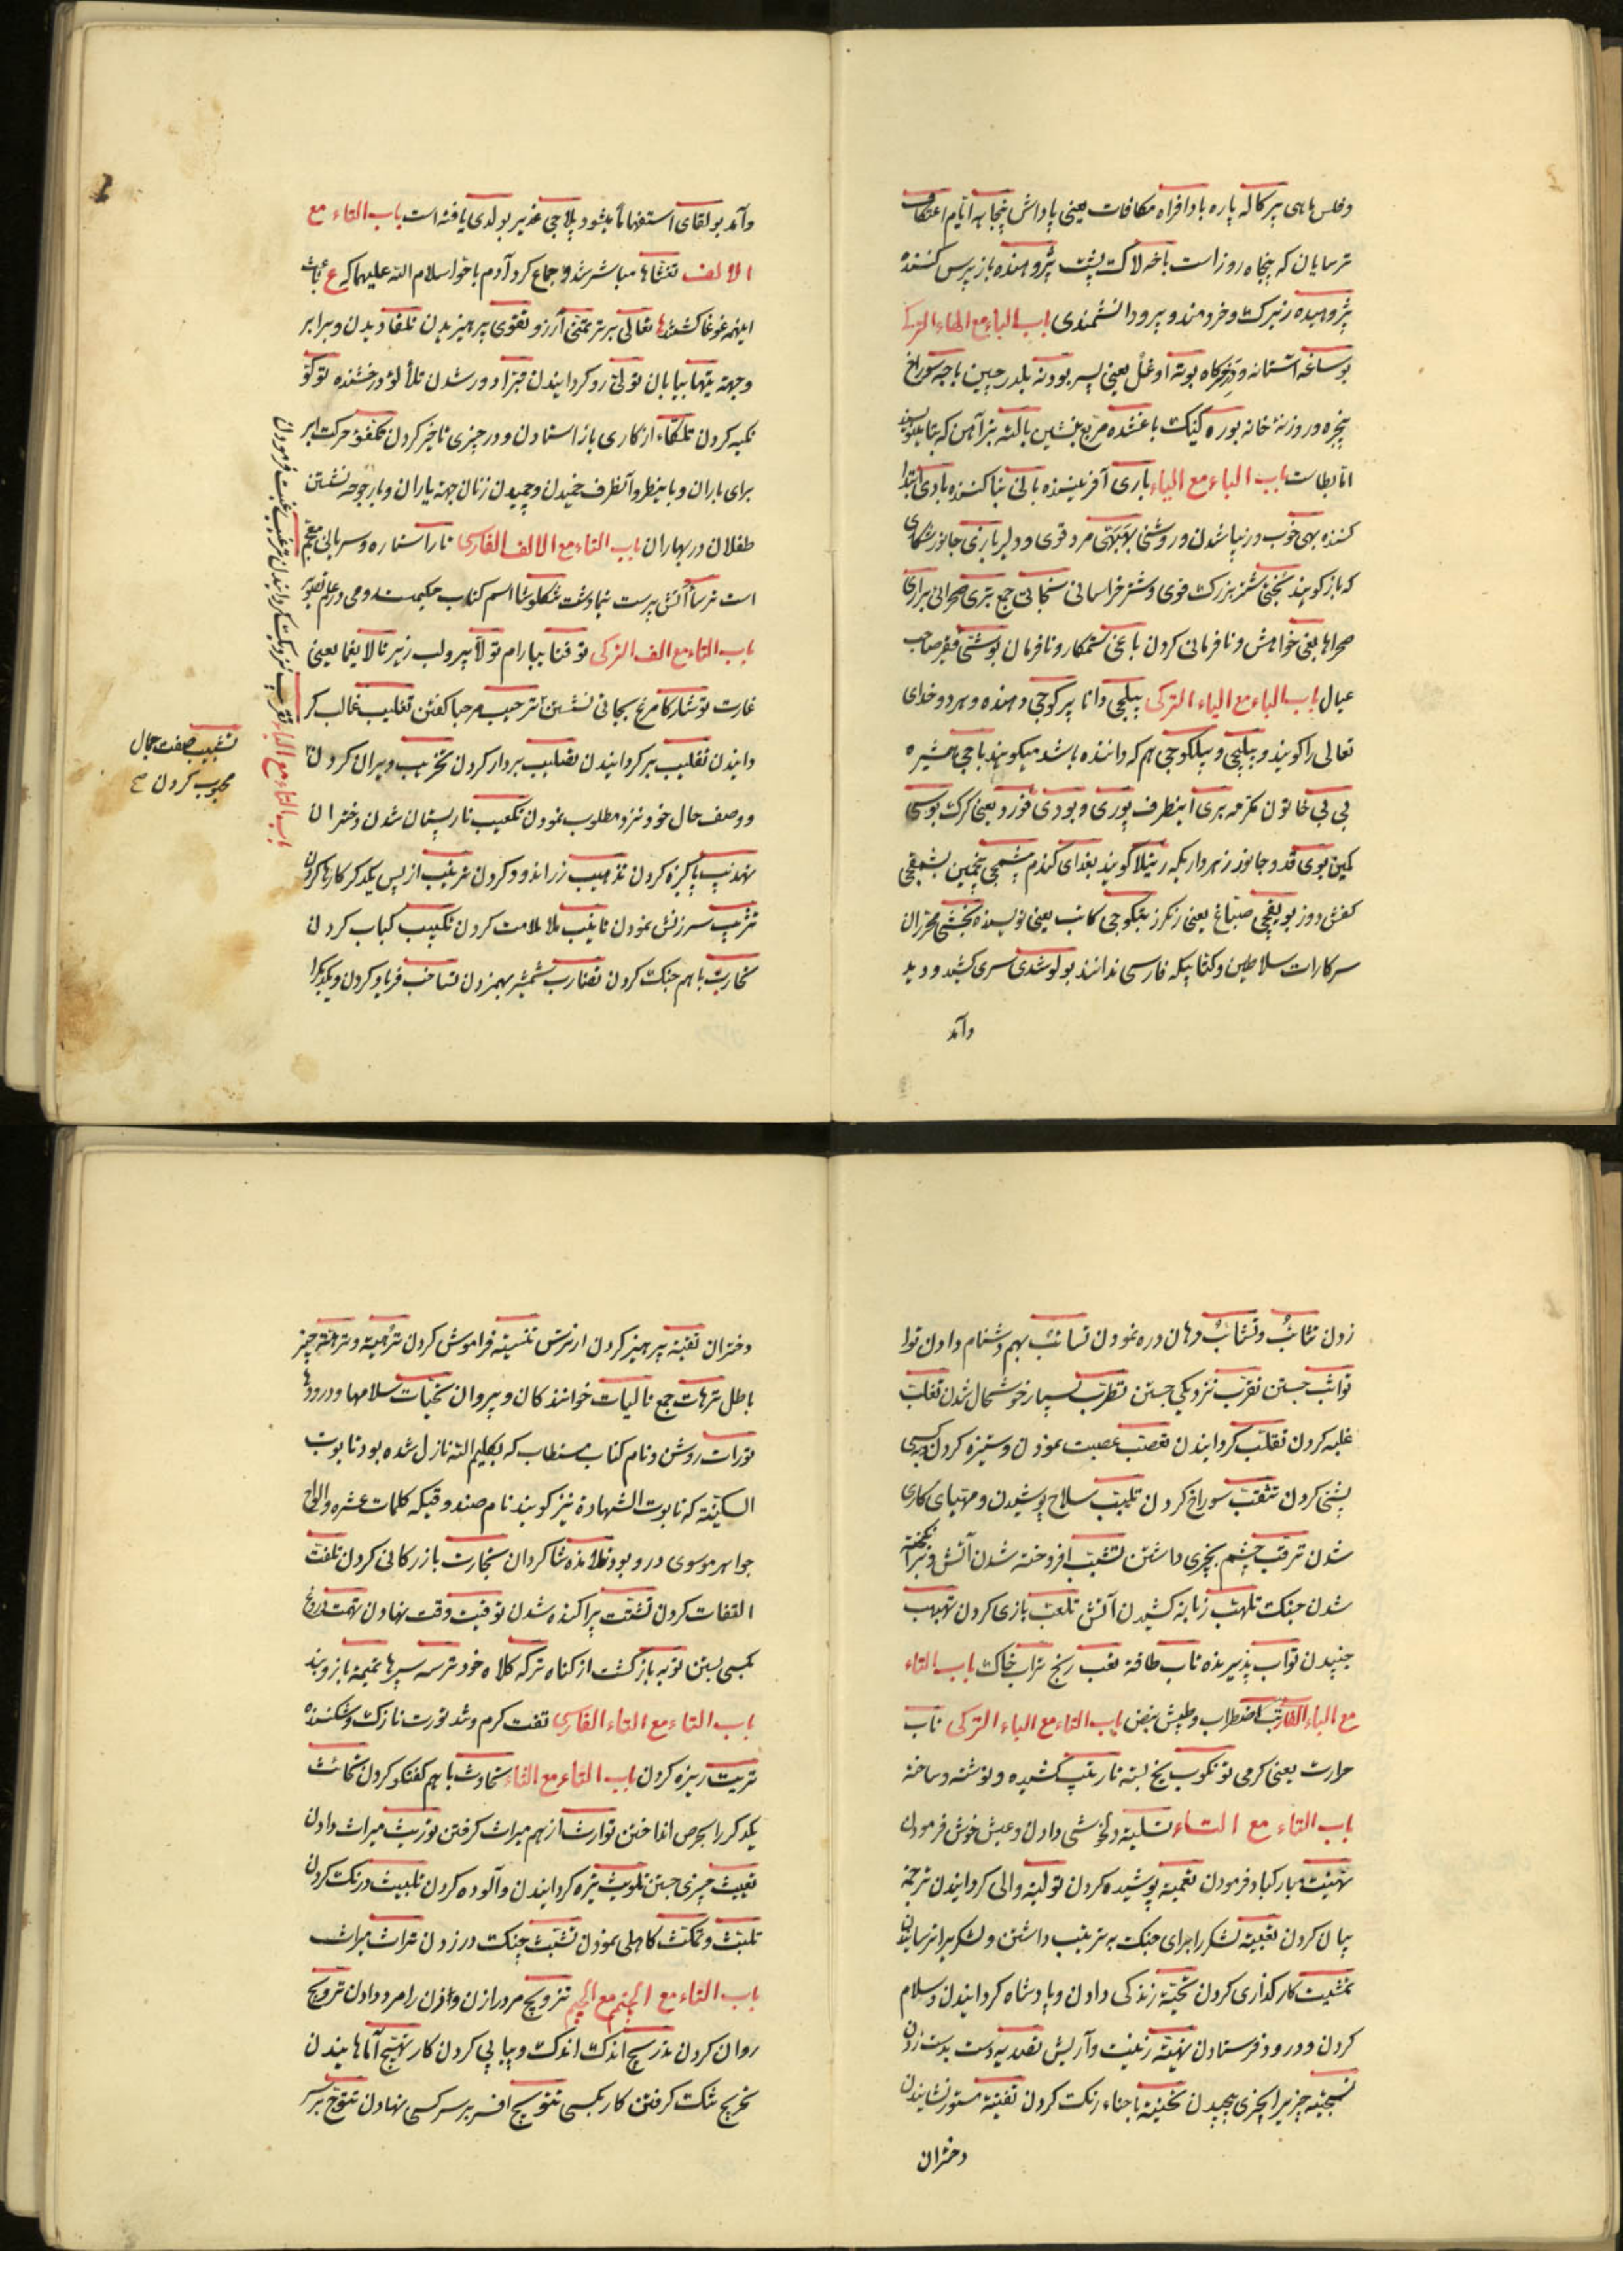 وفلس ماهی پرکاله پاره بادافراه مکافات یعنی پاداش پنجاهه ایّام اعتکاف
ترسایان که پنجاه روز است باخه لاک پشت پژوهنده بازپرس کننده
پژوهیده زیرک و خردمند و پیرو دانشمندی باب الباء مع الهاء الترکی
بوساغه آستانه و درخرکاه بوته اوغل یعنی پسر بودنه بلدرچین باجه سوراخ
پنجره و روزنهٔ خانه بوره کیک باغشده مربع بنشین بالته تبر آهن که
باب الباء مع الیاء باری آفریننده بانی بنا کننده بادی ابتدا
کننده بهی خوب و زیبا شدن و روشنی مرد قوی و دلیر بازی جانور شکاری
که باز کویند بختی شتر بزرک قوی و شتر خراسانی بخاتی جمع برّی صحرائی براری
صحراها بغی خواهش و نافرمانی کردن باغی ستمکار و نافرمان بوشتی فقیر صاحب
عیال باب الباء مع الیاء الترکی بیلجی دانا پرکوجی دهنده و هر دو خدای
تعالی را کویند و بیلیجی و بیلکوجی هم که داننده باشد میکویند باجی همشیره
بی بی خاتون مکرمه بری اینطرف پوری و بودی قورد یعنی کرک بوسی
کمین بوی قد و جانور زهردار یکه رتیلا کویند بغدای کندم پشمجی
کفش دوز بویقجی صبّاغ یعنی رنکرز بتکوجی کاتب یعنی نویسنده بخشی محرّران
سرکارات سلاطین و کتابیکه فارسی ندانند بولوشدی سری کشید و دید
وآمد
وآمد بولقای استفهاماً بشود پلاجی غدیر بولدی یافته است باب التاء مع
الالف تغشّاها مباشر شد و جماع کرد آدم با حوّا سلام الله علیهما که ع باعث
اینهمه غوغا کشتند ها تعالی برتر تمنّی آرزو تقوی پرهیزیدن تلقاء دیدن و برابر
وجهة تیها بیابان تولّی رو کردانیدن تبرّا دور شدن تلألؤ درخشنده توکؤ
تکیه کردن تلکّاء از کاری باز استادن و در چیزی تاخیر کردن حرکت ابر
برای باران و با ینطرف و آنطرف خمیدن و چمیدن زنان جهة یاران و بارجوحه نشستن
طفلان در بهاران باب التاء مع الالف الفارسی تارا ستاره و سریانی معجم
است ترسا آتش پرست تنکلوشا اسم کتاب حکیمست رومی در علم تصویر
باب التاء مع الف الترکی توقتا بیارام تولا پر ولب زهر تالا یغما یعنی
غارت توشارکا مرغ بجائی نشستن ترحیب مرحبا کفتن تغلیب غالب کر
دانیدن تقلیب برکردانیدن تصلیب بردار کردن تخریب ویران کردن
ووصف حال خود نزد مطلوب نمودن تکعیب نارپستان شدن دختران
تهذیب پاکیزه کردن تذهیب زراندود کردن ترتیب از پس یکدکر کارها کردن
تثریب سرزنش نمودن تانیب ملامت کردن تکبیب کباب کردن
تحارب باهم جنک کردن تضارب شمشیر بهم زدن تصاخب فریاد کردن و یکدیکر را
باب التاء مع الباء تقریب نزدیک کردانیدن ترغیب رغبت فرمودن
تشبیب صفت جمال
محبوب کردن صح
زدن تثائب و تثاب دهان دره نمودن تسائب بهم دشنام دادن توا
تواثب جستن تقرّب نزدیکی جستن تطرّب بسیار خوشحال شدن تغلّب
غلبه کردن تقلّب کردانیدن تعصّب عصبیت نمودن و ستیزه کردن و به کسی
پشتی کردن تثقّب سوراخ کردن تلبّب سلاح پوشیدن و مهیّای کاری
شدن ترقّب چشم بچیزی داشتن تشبّب افروخته شدن آتش و برانکیخته
شدن جنک تلهّب زبانه کشیدن آتش تلعّب بازی کردن تهبهب
جنبیدن توّاب پذیرنده تاب طاقة تعب رنج تراب خاک باب التاء
مع الباء الفارسی تب اضطراب و طپش نبض باب التاء مع الباء الترکی تاب
حرارت یعنی کرمی تونکوب یخ بسته تاریتیب کشیده و نوشته و ساخته
باب التاء مع التاء تسلیة دلخوشی دادن و عیش خوش فرمودن
تهنیت مبارکباد فرمودن تغمیة پوشیده کردن تولیة والی کردانیدن ترجمة
بیان کردن تعبیة لشکر را برای جنک به ترتیب داشتن و لشکر برانرسانیدن
تمشیت کارکذاری کردن تحیّة زندکی دادن و پادشاه کردانیدن و سلام
کردن و درود فرستادن تهیّة زینت و آرایش تصدیه دست بدست زدن
تسجیة چیزیرا بچیزی پیچیدن تحنیة باحناء رنک کردن تقنیة مستور نشانیدن
دختران
دختران تقیّة پرهیز کردن از ترس تنسیة فراموش کردن ترّهیة و ترّهة چیز
باطل ترّهات جمع تالیات خوانندکان و پیروان تحیّات سلامها و درودها
تورات روشن و نام کتاب مستطاب که بکلیم الله نازل شده بود تابوت
السکینة که تابوت الشهادة نیز کویند نام صندوقیکه کلمات عشره و الواح
جواهر موسوی در و بود تلامذه شاکردان تجارت بازرکانی کردن تلفّت
التفات کردن تشتّت پراکنده شدن توقیت وقت نهادن تهمت دروغ
بکسی بستن توبه بازکشت از کناه ترکه کلاه خود ترسه سپرها تمیمة بازوبند
باب التاء مع التاء الفارسی تفت کرم و تند تورت نازک و شکننده
تریت ریزه کردن باب التاء مع الثاء تحادث باهم کفتکو کردن تحائث
یکدکر را بحرص انداختن توارث از هم میراث کرفتن توریث میراث دادن
تعییث چیزی جستن تلویث تیره کردانیدن و آلوده کردن تلبیث درنک کردن
تلبّث و تمکّث کاهلی نمودن تشبّث چنک در زدن تراث میراث
باب التاء مع الجیم مع الجیم تزویج مرد را زن و زن را مرد دادن ترویج
روان کردن تدریج اندک اندک و پیاپی کردن کار تهییج آماهانیدن
تخریج تنک کرفتن کار بکسی تتویج افسر بر سر کسی نهادن تتوّج بر سر